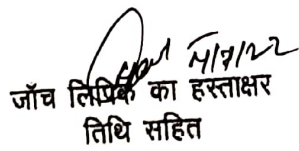 14/7/22
जाँच लिपिक का हस्ताक्षर
तिथि सहित